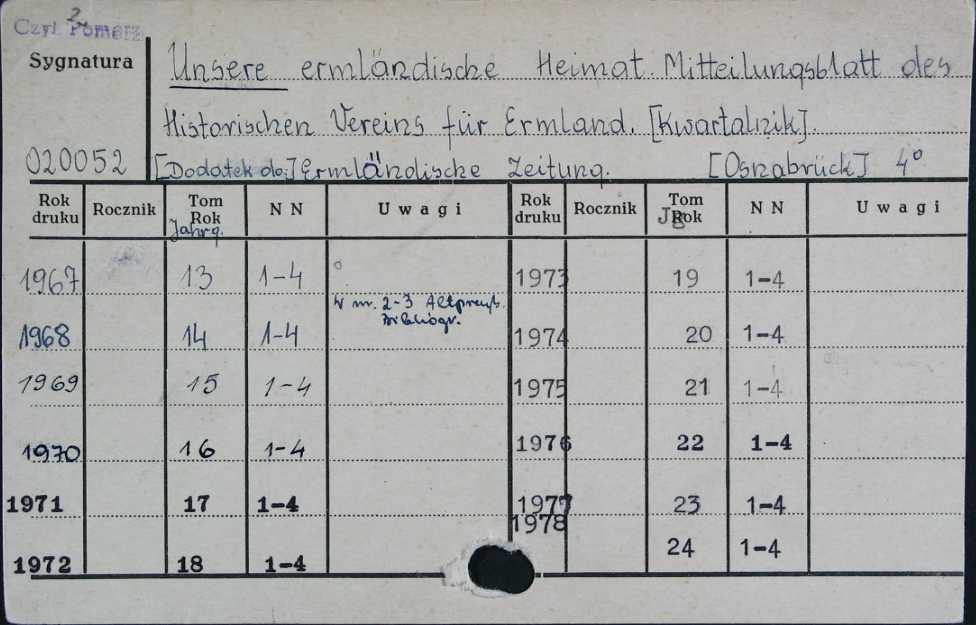 2
Czyt. Pomorz.
Sygnatura
020052
Unsere ermländische Heimat. Mitteilungsblatt des
Historischen Vereins für Ermland. [Kwartalnik].
[Dodatek do:] Ermländische Zeitung. [Osnabrück] 4°
Rok druku Rocznik Tom Rok Jahrg. NN Uwagi Rok druku Rocznik Tom Rok JB NN Uwagi
1967 13 1-4 1973 19 1-4
W nr. 2-3 Altpreuß.
Bibliogr.
1968 14 1-4 1974 20 1-4
1969 15 1-4 1975 21 1-4
1970 16 1-4 1976 22 1-4
1971 17 1-4 1977 23 1-4
1972 18 1-4 1978 24 1-4